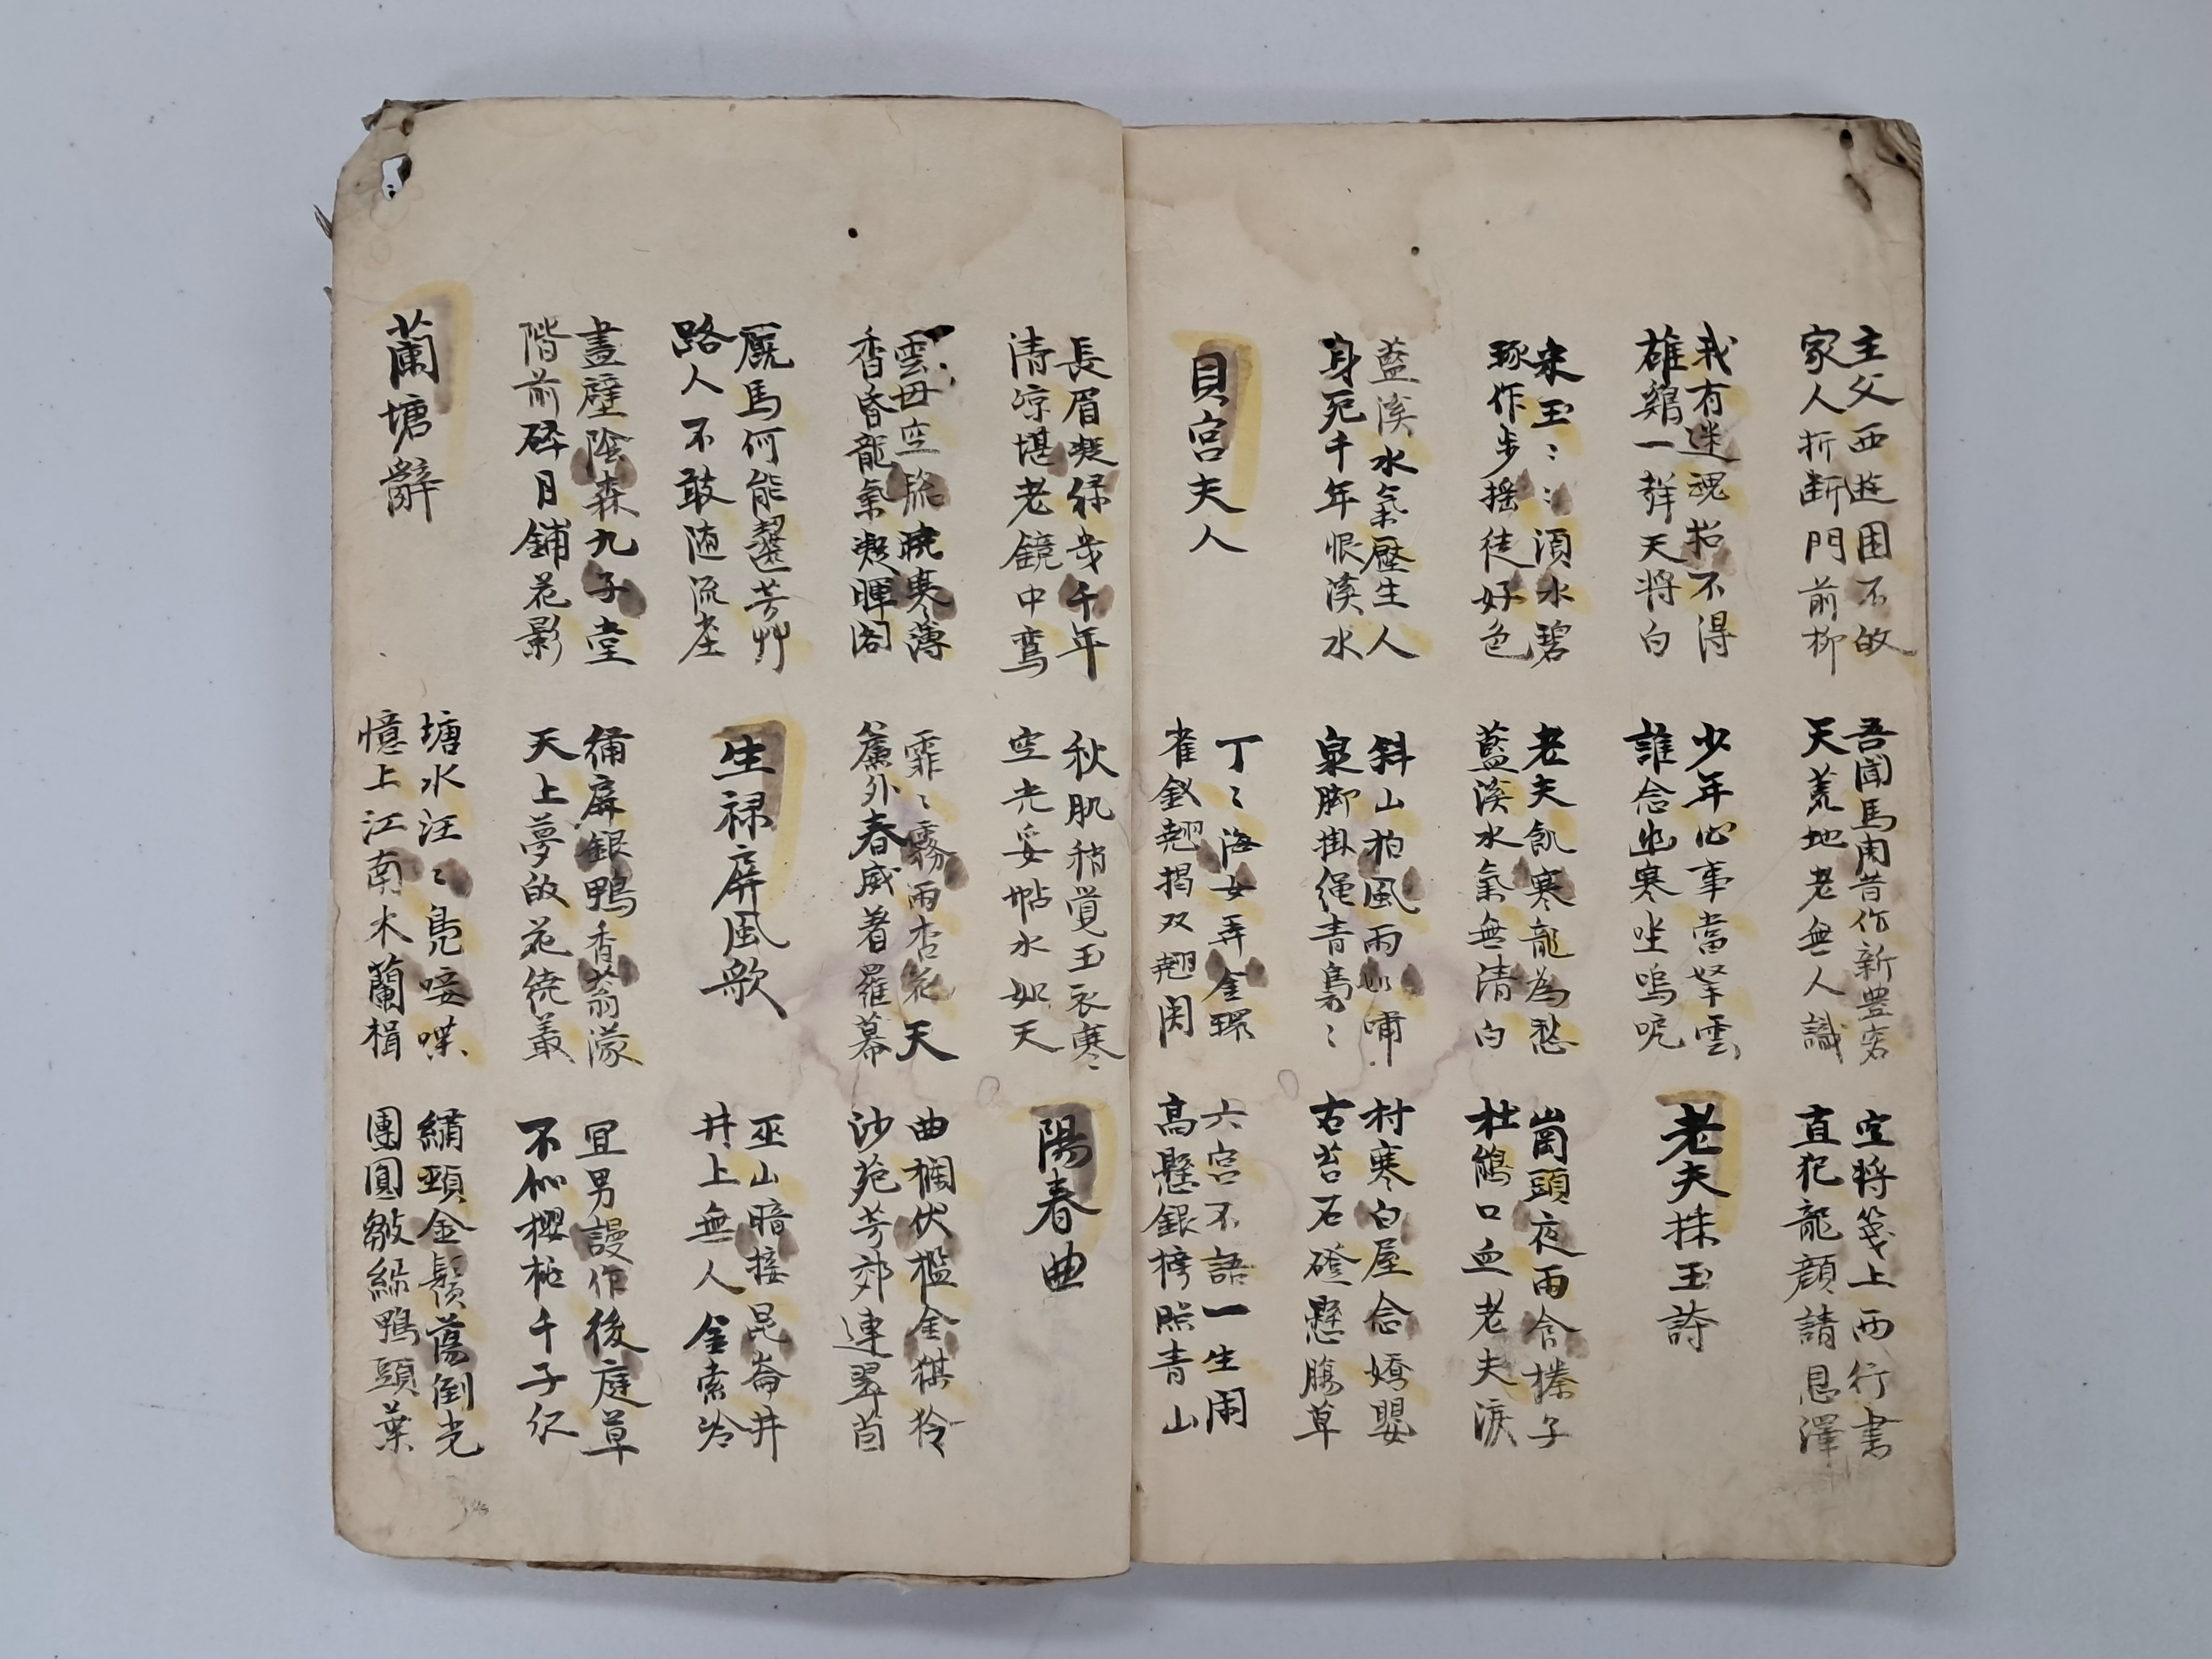 主父西遊困不皈
家人折断門前柳
吾聞馬周昔作新豊客
天荒地老無人識
空將箋上兩行書
直犯龍顏請恩澤
我有迷魂招不得
雄鷄一聲天将白
少年心事當拏雲
誰念幽寒坐嗚呃
老夫採玉詩
采玉〻〻須水碧
琢作步摇徒好色
老夫飢寒龍為愁
藍溪水氣無清白
崗頭夜雨食榛子
杜鵑口血老夫淚
藍溪水氣壓生人
身死千年恨溪水
斜山柏風雨如嘯
泉脚掛繩青裊〻
村寒白屋念嬌嬰
古苔石磴懸腸草
貝宮夫人
丁〻海女弄金環
雀釵翹揭双翅関
六宮不語一生閑
高懸銀榜照青山
長眉凝緑幾千年
清凉堪老鏡中鸞
秋肌稍覚玉衣寒
空光妥帖水如天
陽春曲
雲母空窓曉寒薄
香昏龍氣凝暉閣
霏〻霧雨杏花天
簾外春威着羅幕
曲欄伏檻金猉狑
沙苑芳郊連翠茵
厩馬何能齧芳艸
路人不敢随流塵
生禄屏風歌
巫山暗接昆崙井
井上無人金索冷
畫壁陰森九子堂
階前碎月鋪花影
補屏銀鴨香蓊濛
天上夢皈花繞叢
冝男謾作後庭草
不似櫻桃千子仁
蘭塘辭
塘水汪〻鳧唼喋
憶上江南木蘭楫
繡頸金鬚蕩倒光
團圓皺綠鴨頭葉